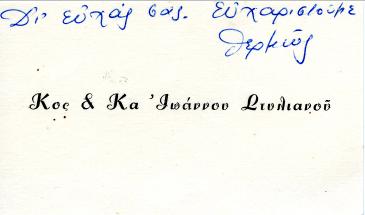 Δι' εὐχάς σας. Εὐχαριστοῦμε
θερμῶς
Κος & Κα Ἰωάννου Στυλιανοῦ